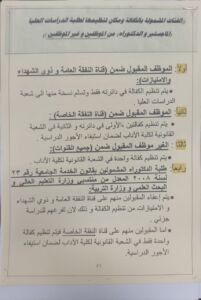 الفئات المشمولة بالكفالة ومكان تنظيمها لطلبة الدراسات العليا
(الماجستير والدكتوراه، من الموظفين و غير الموظفين)
أولاً: الموظف المقبول ضمن (قناة النفقة العامة و ذوي الشهداء
والامتيازات):
• يتم تنظيم كفالة في دائرته فقط وتسلم نسخة منها الى شعبة
الدراسات العليا.
ثانياً: الموظف المقبول ضمن (قناة النفقة الخاصة):
• يتم تنظيم كفالتين «الأولى في دائرته و الثانية في الشعبة
القانونية لكلية الآداب لضمان استيفاء الأجور الدراسية.
ثالثاً: الغير موظف المقبول ضمن (جميع القنوات):
• يتم تنظيم كفالة واحدة في الشعبة القانونية لكلية الآداب.
رابعاً: طلبة الدكتوراه المشمولين بقانون الخدمة الجامعية رقم ٢٣
لسنة ٢٠٠٨ المعدل من منتسبي وزارة التعليم العالي و
البحث العلمي و وزارة التربية:
• يتم إعفاء المقبولين منهم على قناة النفقة العامة و ذوي الشهداء
و الامتيازات من تنظيم الكفالة و ذلك لان تفرغهم للدراسة
جزئي.
• اما المقبولين منهم على قناة النفقة الخاصة فيتم تنظيم كفالة
واحدة فقط في الشعبة القانونية لكلية الآداب لضمان استيفاء
الأجور الدراسية.